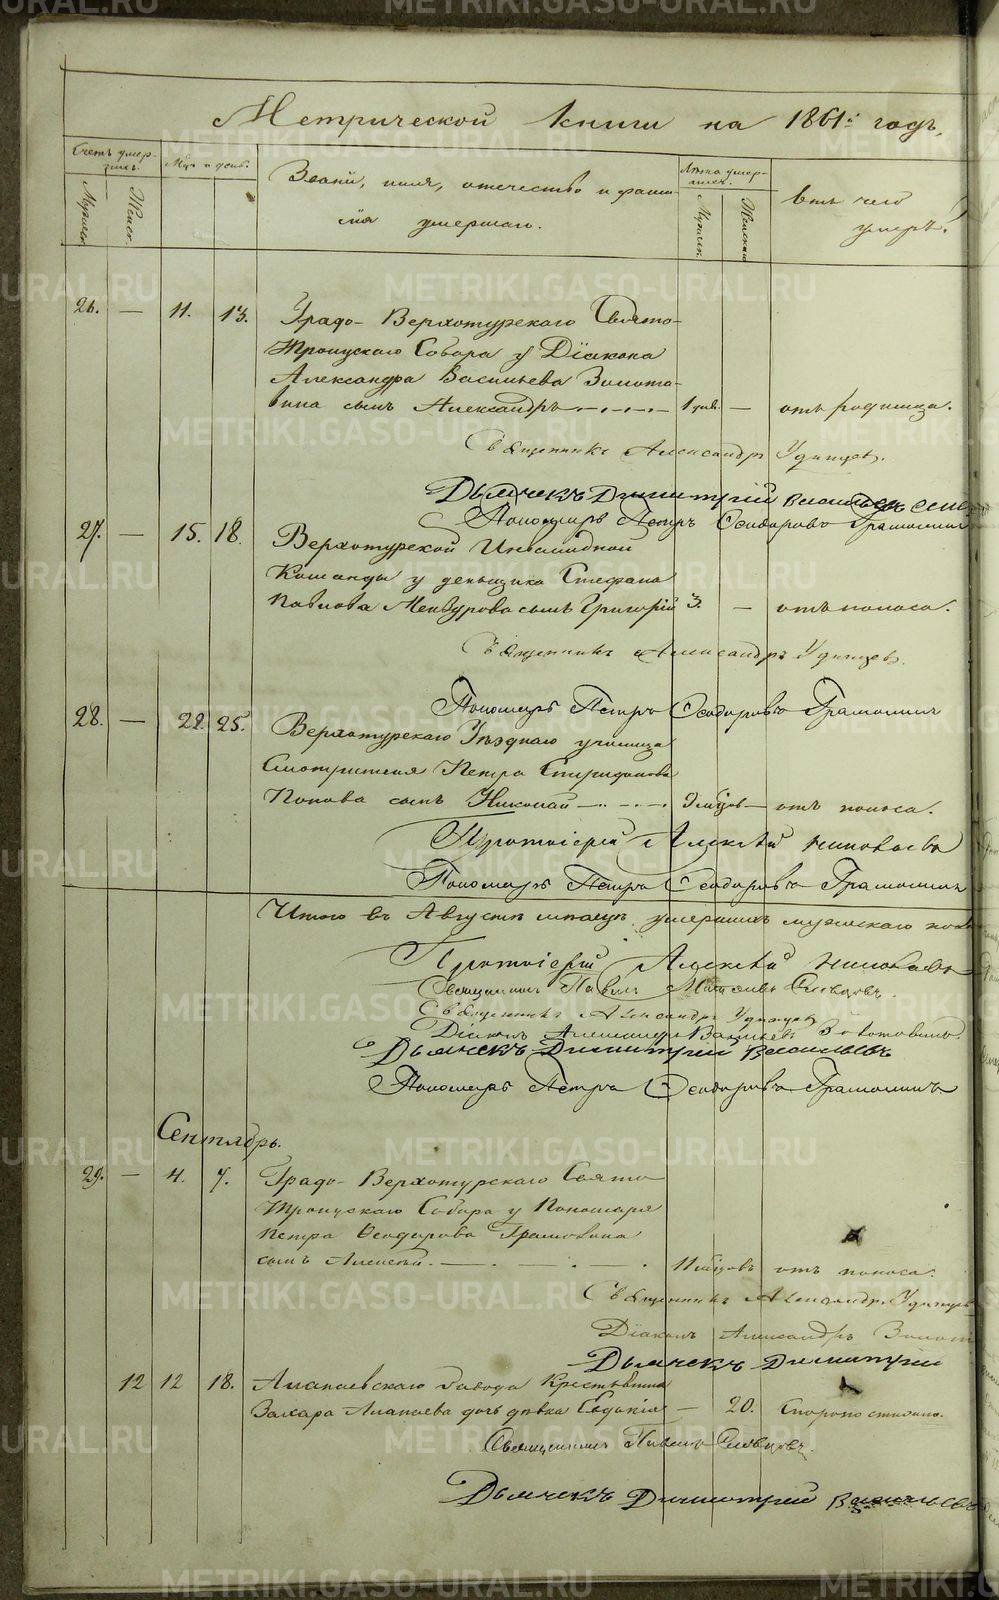 Метрической книги на 1861й годъ,
Счетъ умер-
шихъ.
Мужск.
Женск.
Мѣс. и день.
Званіе, имя, отечество и фами-
лія умершаго.
Лѣта умер-
шихъ.
Мужск.
Женскаго
Отъ чего
умеръ.
26. — 11. 13. Градо-Верхотурскаго Свято-
Троицкаго Собора у Діакона
Александра Васильева Золота-
вина сынъ Александръ — 1 дн. — отъ родимца.
Священникъ Александръ Удинцев.
Дьячекъ Димитрій Васильевъ
Пономарь Петръ Ѳеодоровъ Грамолинъ
27. — 15. 18. Верхотурской Инвалидной
Команды у деньщика Стефана
Павлова Мензурова сынъ Григорій 3. — отъ поноса.
Священникъ Александръ Удинцев.
Пономарь Петръ Ѳеодоровъ Грамолинъ
28. — 22. 25. Верхотурскаго Уѣзднаго училища
Смотрителя Петра Спиридонова
Попова сынъ Николай — 9 мѣсяцов — отъ поноса.
Протоіерей Алексѣй Николаевъ
Пономарь Петръ Ѳеодоровъ Грамолинъ
Итого въ Августѣ мѣсяцѣ умершихъ мужескаго пола
Протоіерей Алексѣй Николаевъ
Священникъ Павелъ Словцовъ.
Священникъ Александръ Удинцев
Діаконъ Александръ Васильевъ Золотавинъ.
Дьячекъ Димитрій Васильевъ
Пономарь Петръ Ѳеодоровъ Грамолинъ
Сентябрь.
29. — 4. 7. Градо-Верхотурскаго Свято
Троицкаго Собора у Пономаря
Петра Ѳеодорова Грамолина
сынъ Алексѣй. — 11 мѣсяцовъ отъ поноса.
Священникъ Александръ Удинцев
Діаконъ Александръ Золот
Дьячекъ Димитрій
12 12 18. Алапаевскаго завода Крестьянина
Захара Алапаева дочь дѣвка Евдокія — 20. Скоропостижно.
Священникъ Павелъ Словцовъ.
Дьячекъ Димитрій Васильевъ
METRIKI.GASO-URAL.RU